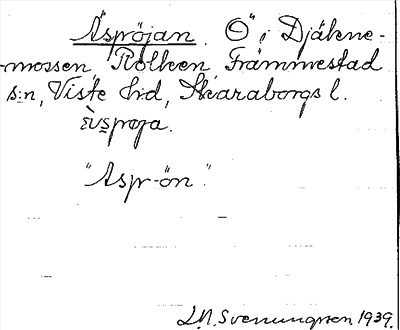 Äspröjan. Ö i Djäkne-
-mossen, Rolleen, Främmestad
s:n, Viste h:d, Skaraborgs l.
"Aspr-ön".
J.N. Svenungsson. 1939.